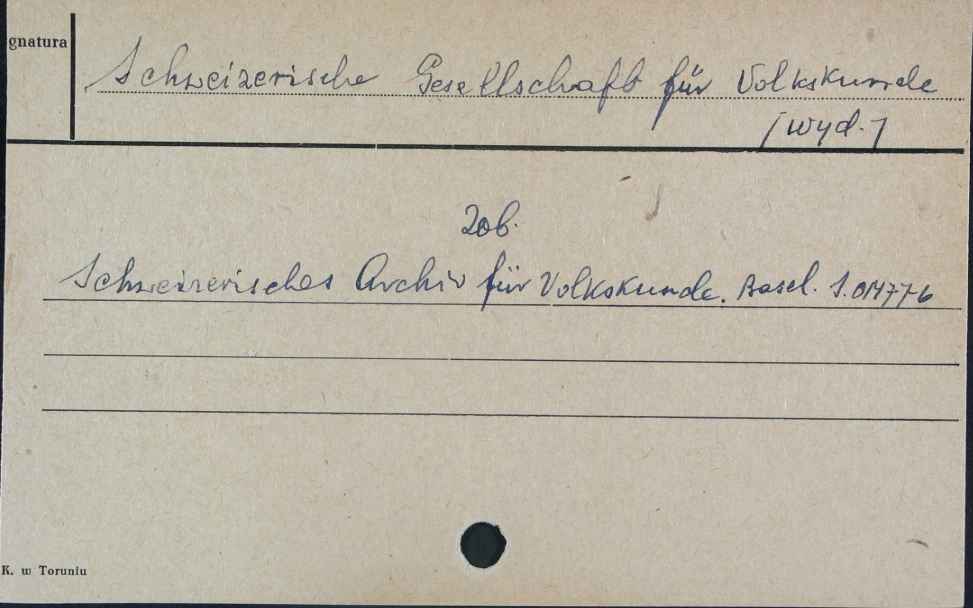 gnatura
Schweizerische Gesellschaft für Volkskunde
[wyd.]
zob.
Schweizerisches Archiv für Volkskunde. Basel. S.01477-b
K. w Toruniu